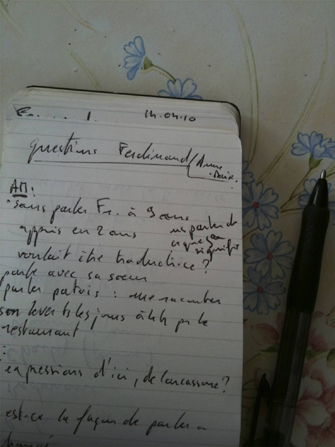 E.... 1 14.04.10
questions Ferdinand/Anne-Marie
AM:
sans parler Fr. à 9 ans
appris en 2 ans
me parler de
ce que ça
signifie
voulait être traductrice?
parle avec sa sœur
parler patois : une
son lever ts les jours à
restaurant
:
expressions d'ici, de Carcassonne?
est-ce la façon de parler